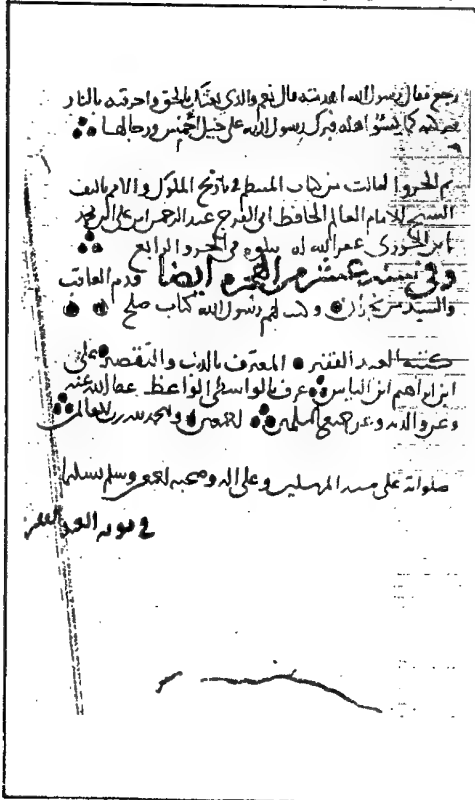 رجع فقال رسول الله اهدمته قال نعم والذي بعثك بالحق واحرقته بالنار
فتركته كما يسؤ اهله فبرك رسول الله على خيل أحمس ورجالها
تم الجزو الثالث من كتاب المنتظم في تاريخ الملوك والامم تاليف
الشيخ الامام العالم الحافظ ابى الفرج عبد الرحمن ابن على
ابن الجوزى غفر الله له يتلوه في الجزو الرابع
وفي سنة عشر من الهجرة ايضا قدم العاقب
والسيد من نجران وكتب لهم رسول الله كتاب صلح
كتبه العبد الفقير المعترف بالذنب والتقصير على
ابن ابراهيم ابن الياس عرف بالواسطى الواعظ عفا الله عنه
وعن والديه وعن جميع المسلمين اجمعين والحمد لله رب العالمين
صلواته على سيد المرسلين وعلى اله وصحبه وسلم تسليما
في نوبة العبد الفقير